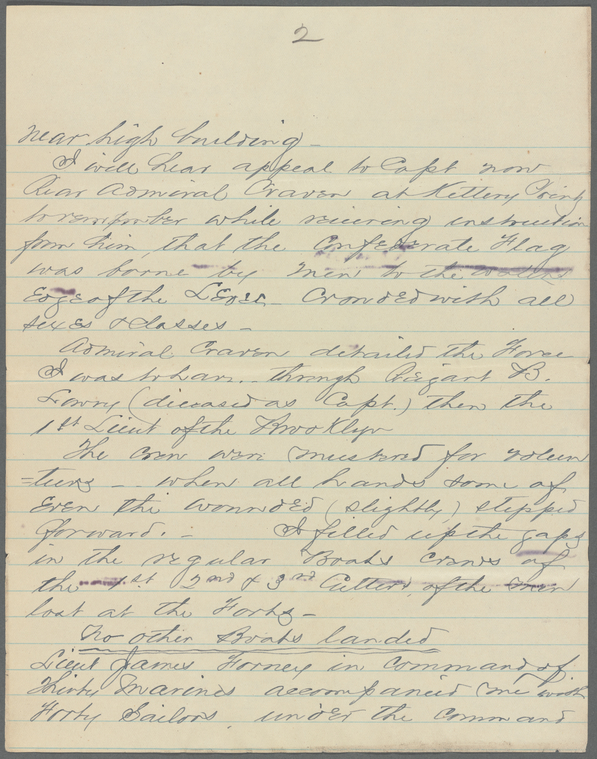 2
near high building –
I will hear appeal to Capt now
Rear Admiral Craven at Kittery Point
to remember while receiving instruction
from him, that the Confederate Flag
was borne by men to the
Edge of the Levee – Crowded with all
sexes & classes –
Admiral Craven detailed the Force
I was to have – through Reigart B.
Lowry (deceased as Capt.) then the
1st Lieut of the Brooklyn
The crew were mustered for volun
=teers – – when all hands some of
Even the wounded (slightly) stepped
forward. – I filled up the gaps
in the regular Boats crews of
the 1st 2nd & 3rd Cutters, of the men
lost at the Forts –
No other Boats landed
Lieut James Forney in command of
Thirty Marines accompanied me with
Forty Sailors, under the command